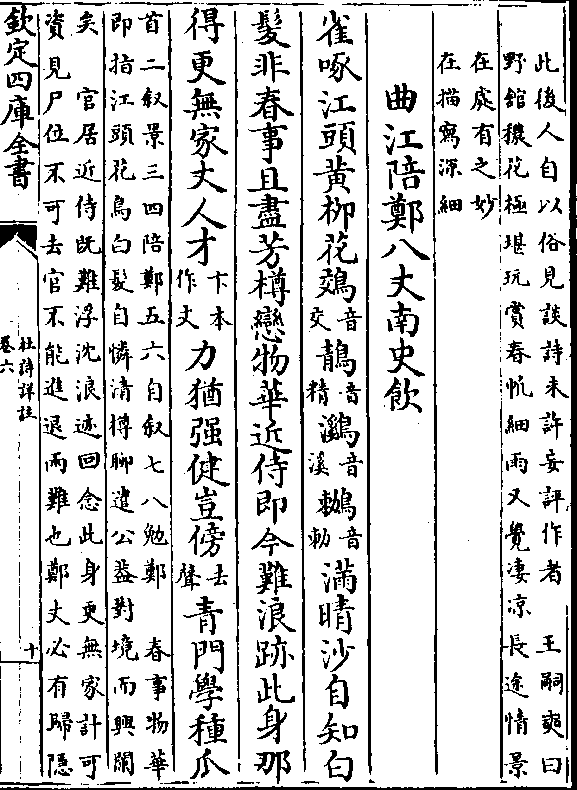 此後人自以俗見談詩未許妄評作者 王嗣奭曰
野館穠花極堪玩賞春帆細雨又覺凄凉長途情景
在處有之妙
在描寫深細
曲江陪鄭八丈南史飲
雀啄江頭黃柳花鵁音交鶄音精鸂音溪鶒音勅滿晴沙自知白
髮非春事且盡芳樽戀物華近侍即今難浪跡此身那
得更無家丈人才卞本作丈力猶强健豈傍去聲青門學種瓜
首二叙景三四陪鄭五六自叙七八勉鄭 春事物華
即指江頭花鳥白髮自憐清樽聊遣公葢對境而興闌
矣 官居近侍既難浮沈浪迹回念此身更無家計可
資見尸位不可去官不能進退兩難也鄭丈必有歸隱
欽定四庫全書
杜詩詳註
卷六
十